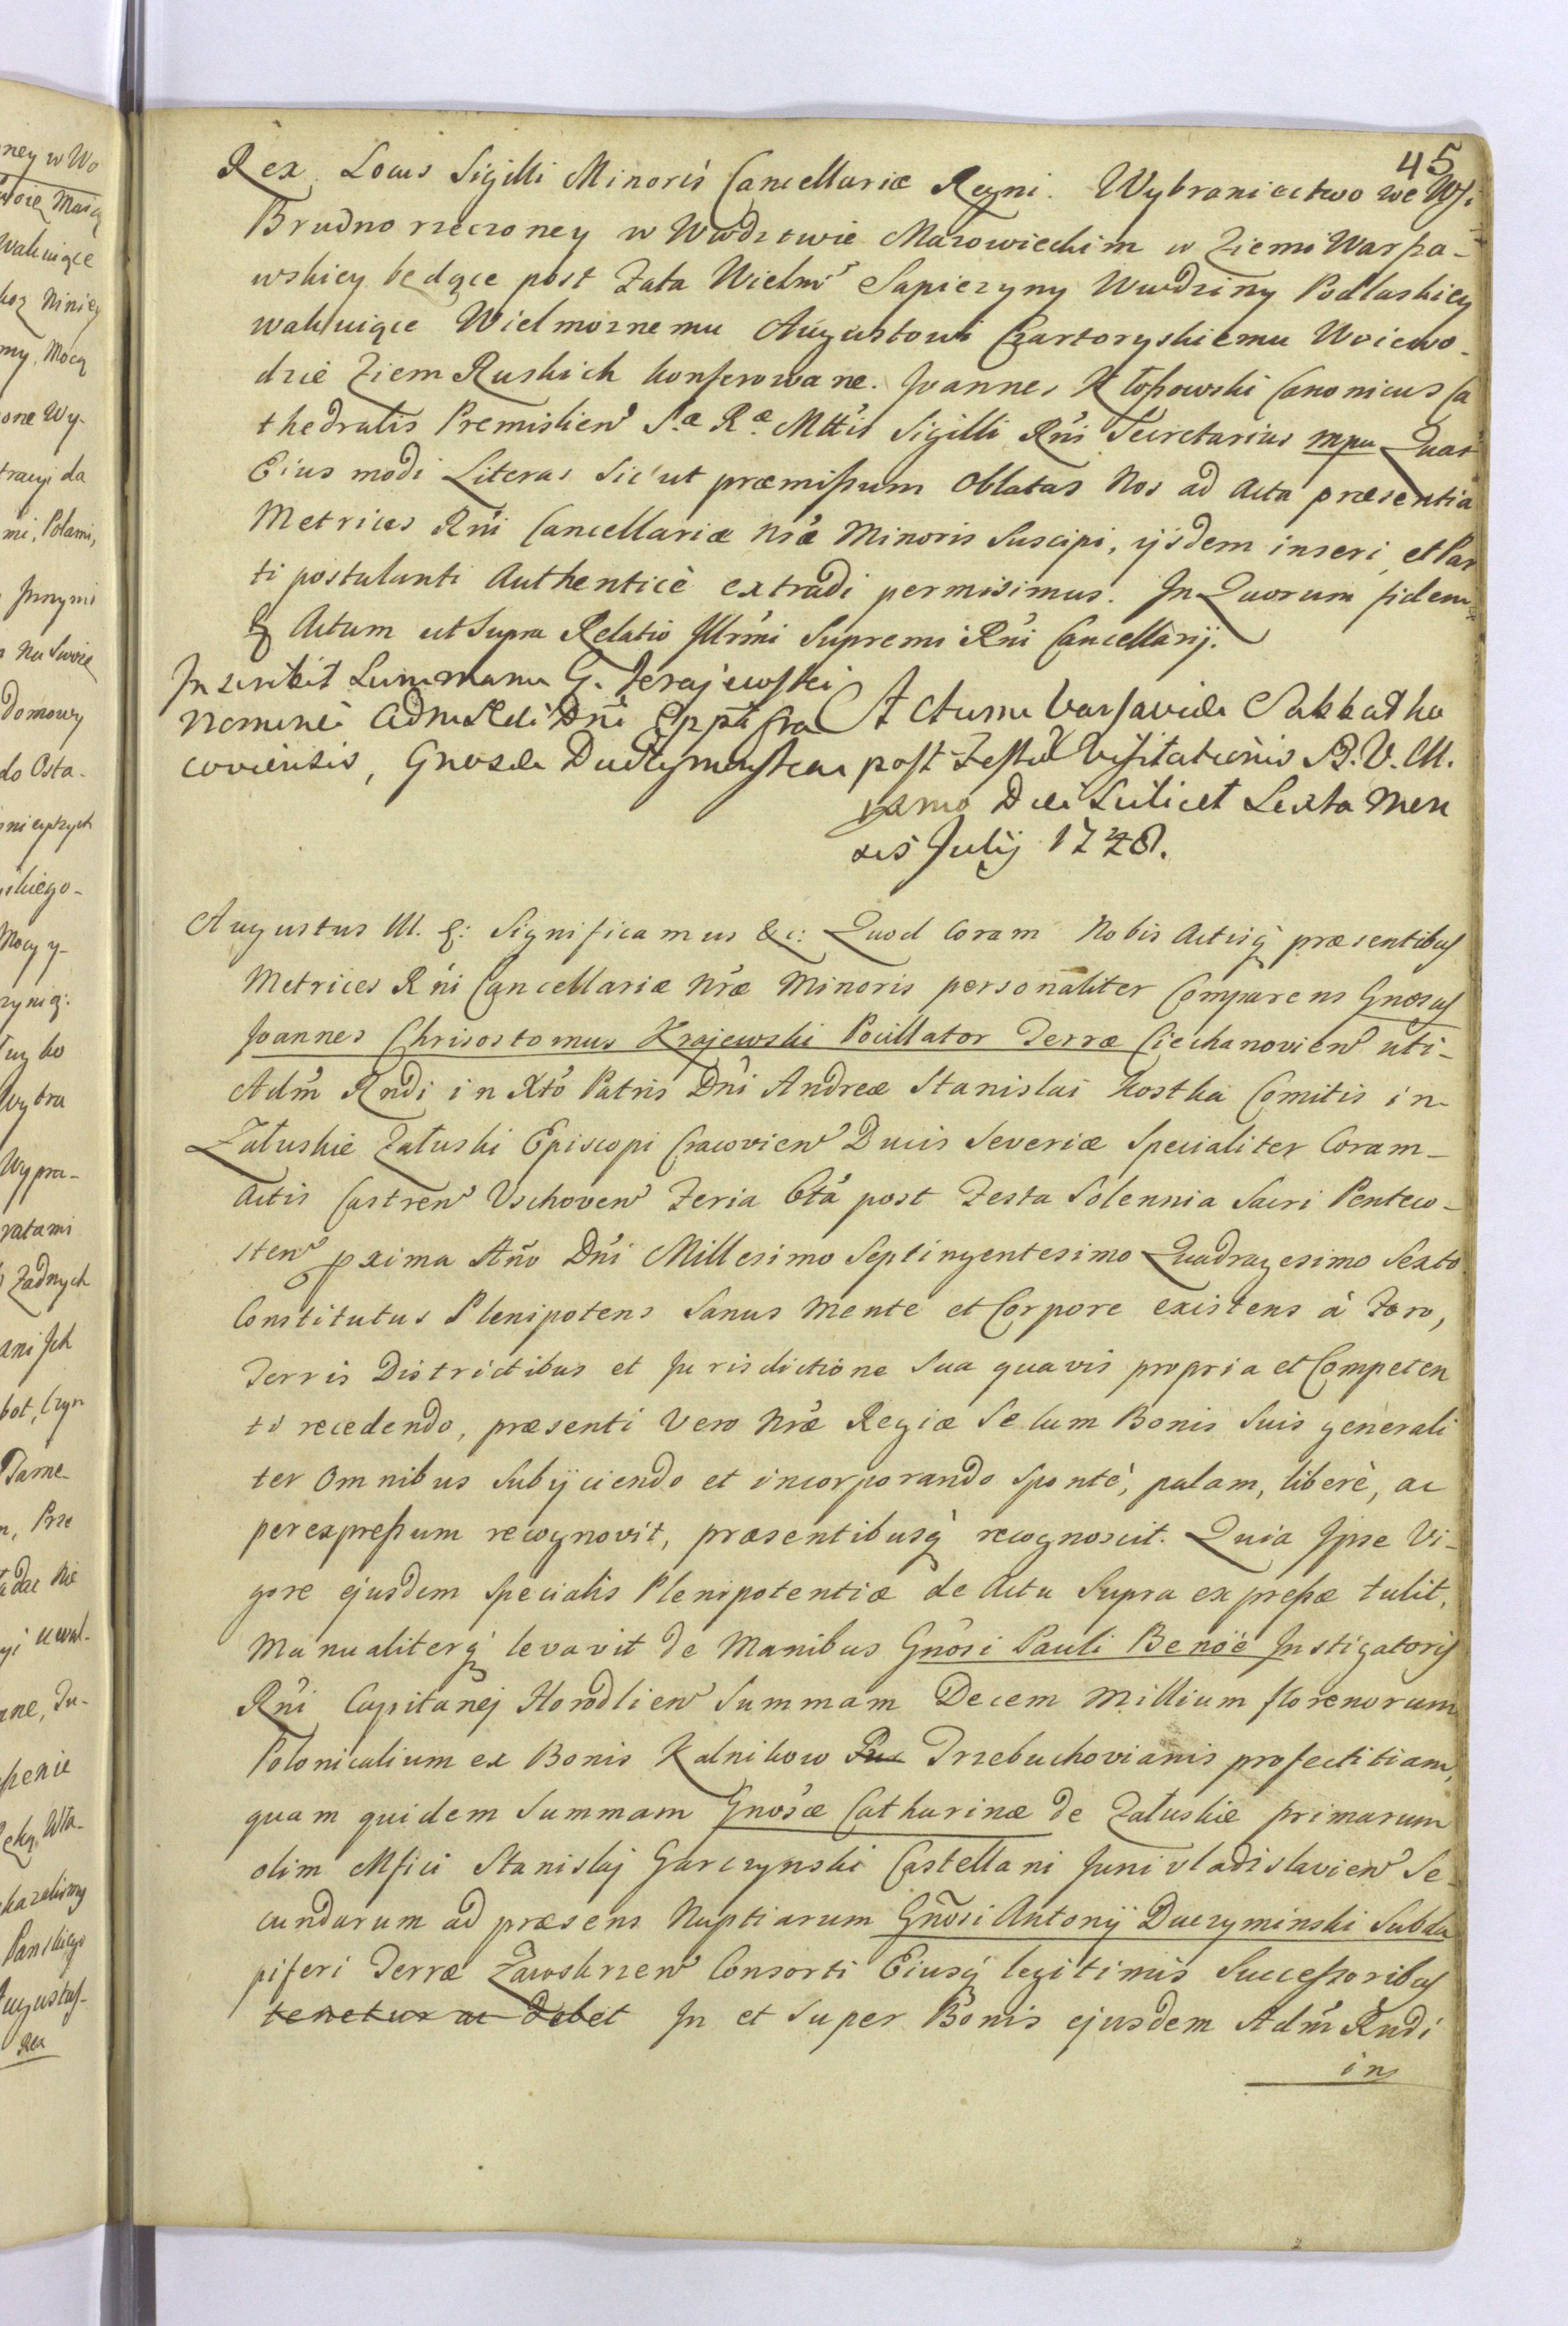 45
Rex. Locus Sigilli Minoris Cancellariæ Regni. Wybraniectwo we Wsi
Brudno rzeczoney w Wwdztwie Mazowieckim w Ziemi Warsza-
wskiey będące post Fata Wielmẽ Sapiezyny Wwdziny Podlaskiey
wakuiące Wielmoznemu Augustowi Czartoryskiemu Woiewo-
dzie Ziem Ruskich konferowane. Joannes Kłossowski Canonicus Ca
thedralis Premislien̄ S.æ R.æ Mttis Sigilli Rñi Secretarius mpa Quas
Eius modi Literas Sic'ut præmissum Oblatas Nos ad Acta præsentia
Metrices Rñi Cancellariæ Nræ Minoris Suscipi, ijsdem inseri, et Par
ti postulanti Authenticè extradi permisimus. In Quorum fidem
& Actum ut Supra Relatio Illrmi Supremi Rñi Cancellarij.
Inscribit Summam G. Krajewski
Nomine Adm Rdi Dñi Eppi Cra
coviensis, Gnosæ Duczyminskiey
Actum Varsaviæ Sabbatho
post Festū Visitationis B. V. M.
pxmo Die Scilicet Sexta Men
sis Julij 1748.
Augustus III. &: Significamus &c: Quod Coram Nobis Actisq̃ præsentibus
Metrices Rñi Cancellariæ Nræ Minoris personaliter Comparens Gnosus
Joannes Chrisostomus Krajewski Pocillator Terræ Ciechanovien̄ uti-
Adm̃ Rndi in Xto Patris Dñi Andreæ Stanislai Kostka Comitis in
Załuskie Załuski Episcopi Cracovien̄ Ducis Severiæ Specialiter Coram-
Actis Castren̄ Vschoven̄ Feria 6tâ post Festa Solennia Sacri Penteco-
sten̄ pxima Año Dñi Millesimo Septingentesimo Quadragesimo Sexto
Constitutus Plenipotens Sanus Mente et Corpore existens à Foro,
Terris Districtibus et Jurisdictione Sua quavis propria et Competen
ti recedendo, præsenti Vero Nræ Regiæ Se cum Bonis Suis generali
ter Omnibus Subijciendo et incorporando Sponté, palam, liberè, ac
per expressum recognovit, præsentibusq̃ recognoscit. Quia Ipse Vi-
gore ejusdem Specialis Plenipotentiæ de Actu Supra expressæ tulit,
Manualiterq̃ levavit de Manibus Gnosi Pauli Benoé Instigatoris
Rñi Capitanej Horodlien̄ Summam Decem Millium florenorum
Polonicalium ex Bonis Kalnikow Trzebuchovianis profectitiam,
quam quidem Summam Gnosæ Catharinæ de Załuskie primarum
olim Mfici Stanislaj Garczynski Castellani Junivladislavien̄ Se
cundarum ad præsens Nuptiarum Gñosi Antonij Duczyminski Subda
piferi Terræ Zawskrzen̄ Consorti Eiusq̃ legitimis Successoribus
tenetur ac debet In et Super Bonis ejusdem Adm̃ Rndi
in